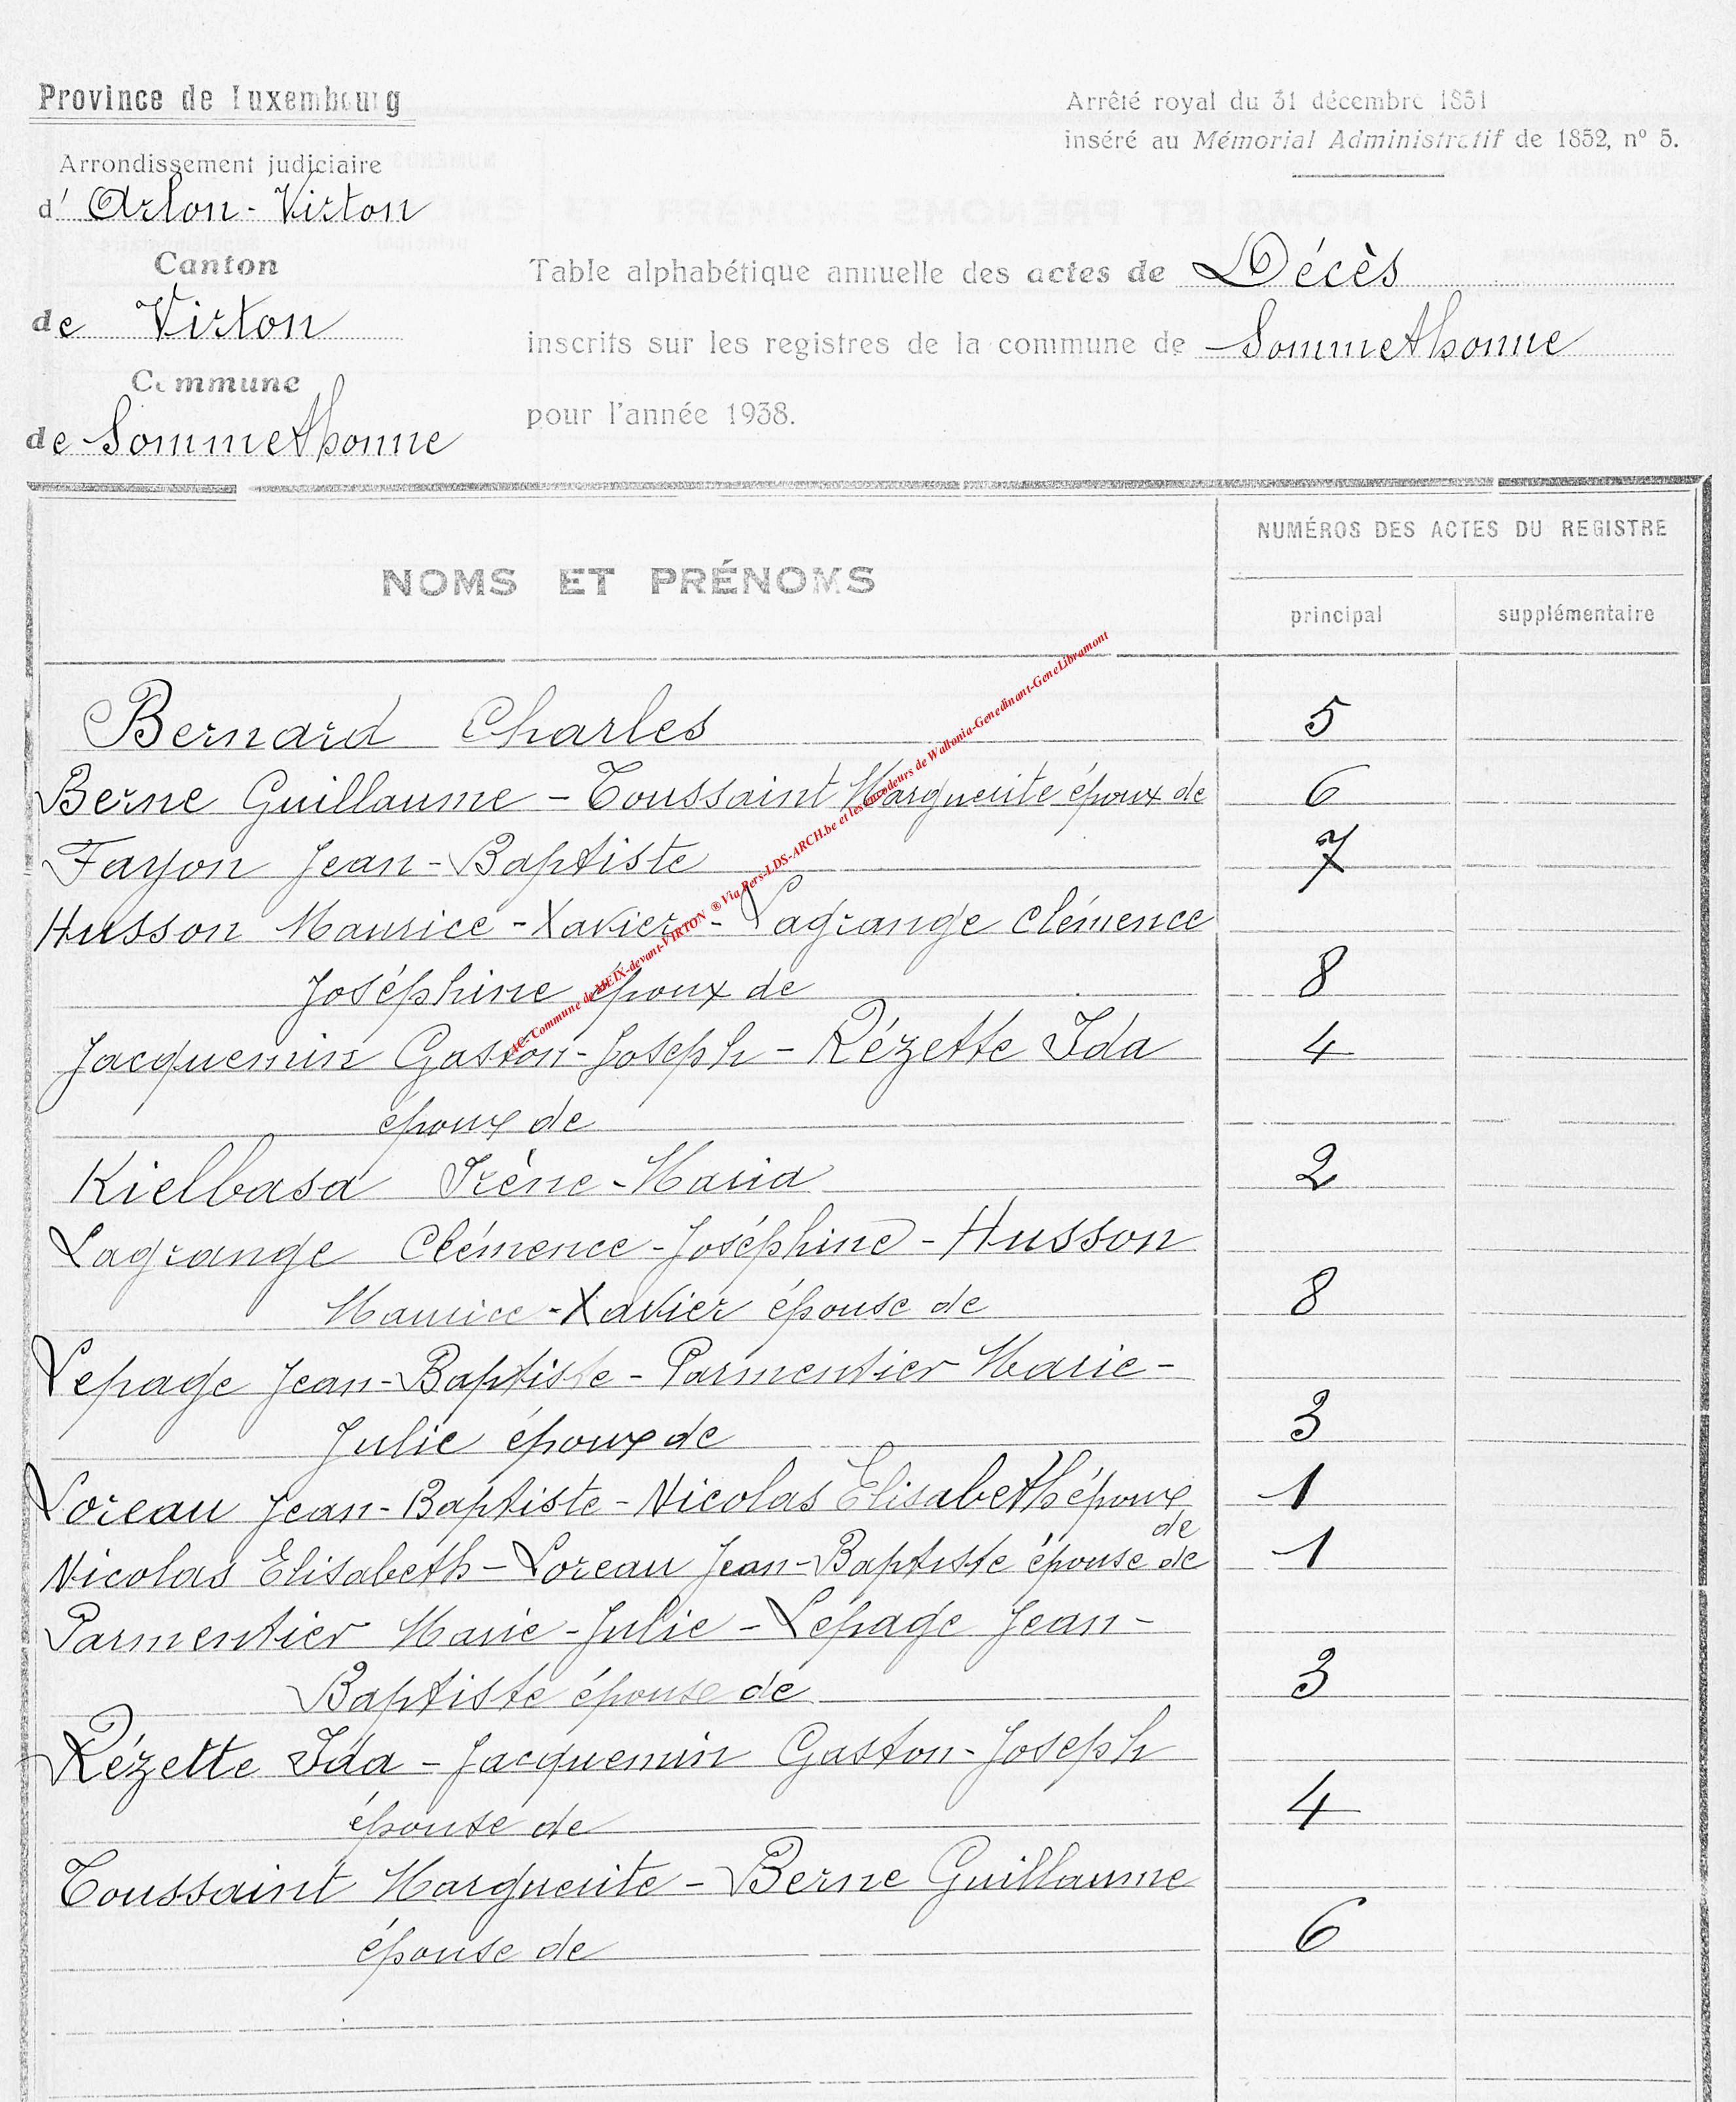 Province de Luxembourg
Arrêté royal du 31 décembre 1851
inséré au Mémorial Administratif de 1852, nº 5.
Arrondissement judiciaire
d' Arlon-Virton
Canton
de Virton
Commune
de Sommethonne
Table alphabétique annuelle des actes de Décès
inscrits sur les registres de la commune de Sommethonne
pour l'année 1938.
NOMS ET PRÉNOMS
NUMÉROS DES ACTES DU REGISTRE
principal supplémentaire
Bernard Charles 5
Berne Guillaume - Toussaint Marguerite époux de 6
Fayon Jean-Baptiste 7
Husson Maurice-Xavier - Lagrange Clémence
Joséphine époux de 8
Jacquemin Gaston-Joseph - Rézette Ida 4
époux de
Kielbasa Irène-Maria 2
Lagrange Clémence-Joséphine - Husson
Maurice-Xavier épouse de 8
Lepage Jean-Baptiste - Parmentier Marie-
Julie époux de 3
Loreau Jean-Baptiste - Nicolas Elisabeth époux 1
de
Nicolas Elisabeth - Loreau Jean-Baptiste épouse de 1
Parmentier Marie-Julie - Lépage Jean-
Baptiste épouse de 3
Rézette Ida - Jacquemin Gaston-Joseph
épouse de 4
Toussaint Marguerite - Berne Guillaume
épouse de 6
AC- Commune de MEIX-devant-VIRTON ® Via Pers-LDS-ARCH.be et les encodeurs de Wallonia-Genedinant-GeneLibramont